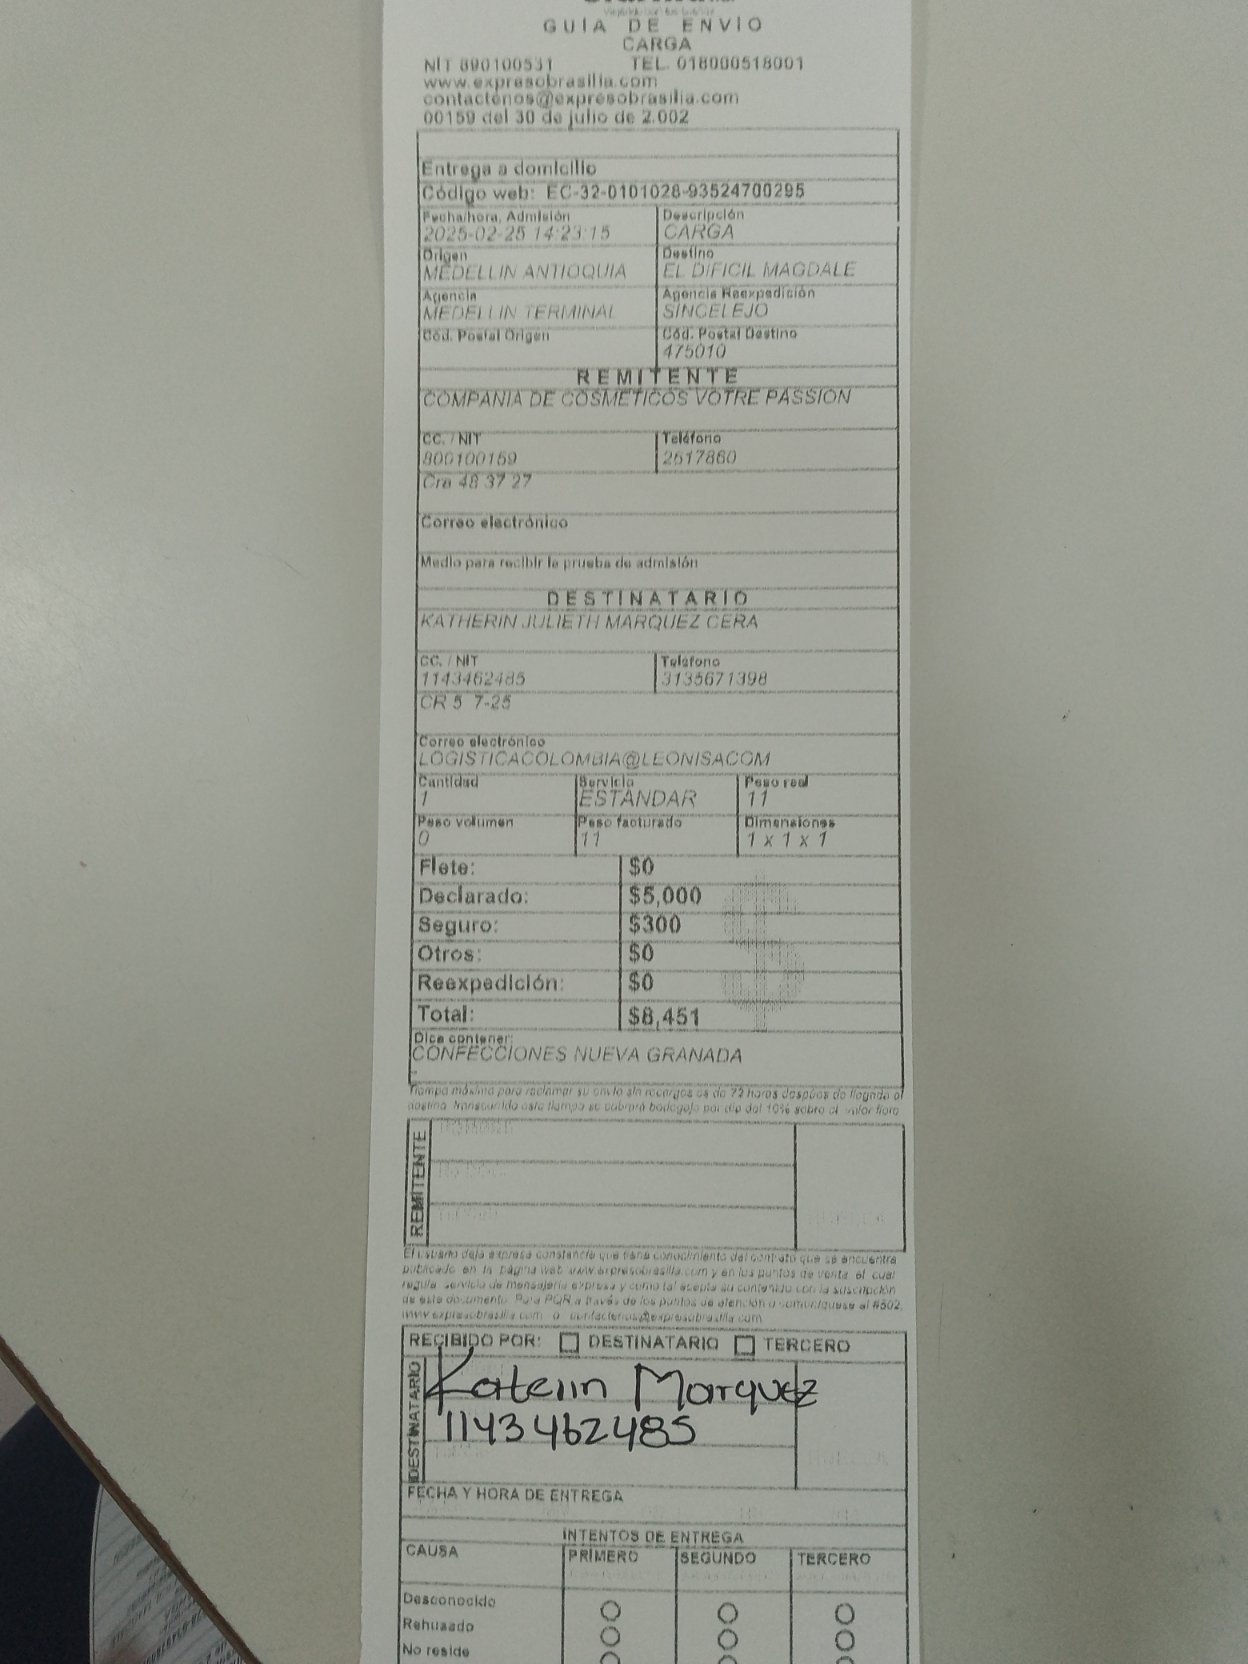 GUÍA DE ENVÍO
CARGA
NIT 890100531 TEL. 018000518001
www.expresobrasilia.com
contactenos@expresobrasilia.com
00159 del 30 de julio de 2.002
Entrega a domicilio
Código web: EC-32-0101028-93524700295
Fecha/hora, Admisión Descripción
2025-02-25 14:23:15 CARGA
Origen Destino
MEDELLIN ANTIOQUIA EL DIFICIL MAGDALE
Agencia Agencia Reexpedición
MEDELLIN TERMINAL SINCELEJO
Cód. Postal Origen Cód. Postal Destino
475010
REMITENTE
COMPANIA DE COSMETICOS VOTRE PASSION
CC. / NIT Teléfono
800100159 2517860
Cra 48 37 27
Correo electrónico
Medio para recibir la prueba de admisión
DESTINATARIO
KATHERIN JULIETH MARQUEZ CERA
CC. / NIT Teléfono
1143462485 3135671398
CR 5 7-25
Correo electrónico
LOGISTICACOLOMBIA@LEONISACOM
Cantidad Servicio Peso real
1 ESTANDAR 11
Peso volumen Peso facturado Dimensiones
0 11 1 x 1 x 1
Flete: $0
Declarado: $5,000
Seguro: $300
Otros: $0
Reexpedición: $0
Total: $8,451
Dice contener:
CONFECCIONES NUEVA GRANADA
Tiempo máximo para reclamar su envío sin recargos es de 72 horas después de llegado al
destino, transcurrido este tiempo se cobrará bodegaje por día del 10% sobre el valor flete
REMITENTE
El usuario deja expresa constancia que tiene conocimiento del contrato que se encuentra
publicado en la página web www.expresobrasilia.com y en los puntos de venta, el cual
regula servicio de mensajería expresa y como tal acepta su contenido con la suscripción
de este documento. Para PQR a través de los puntos de atención o comuníquese al #502,
www.expresobrasilia.com o contactenos@expresobrasilia.com
RECIBIDO POR: DESTINATARIO TERCERO
DESTINATARIO
Katerin Marquez
1143462485
FECHA Y HORA DE ENTREGA
INTENTOS DE ENTREGA
CAUSA PRIMERO SEGUNDO TERCERO
Desconocido
Rehusado
No reside